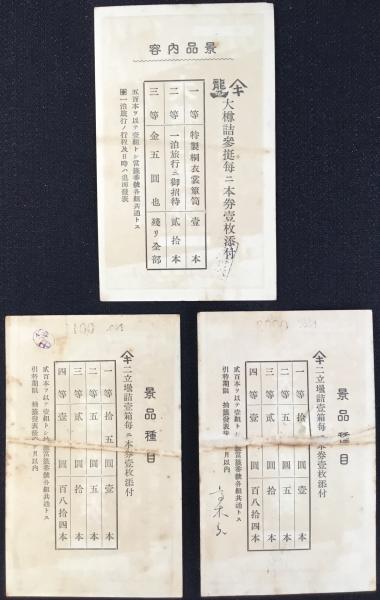 景品內容
大樽詰參挺每ニ本券壹枚添付
一等 特製桐衣裳簞笥 壹本
二等 一泊旅行ニ御招待 貳拾本
三等 金五圓也 殘リ全部
五百本ヲ以テ壹組トシ當籤番號各組共通トス
一泊旅行ノ行程及日時ハ追而發表
景品種目
二立場詰壹箱每ニ本券壹枚添付
一等 拾五圓 壹本
二等 五圓 五本
三等 貳圓 拾本
四等 壹圓 百八拾四本
貳百本ヲ以テ壹組トシ 當籤番號各組共通トス
引替期限 抽籤發表後 月以內
景品種目
二立場詰壹箱每ニ本券壹枚添付
一等 拾 圓 壹本
二等 五 圓 五本
三等 貳 圓 拾本
四等 壹 圓 百八拾四本
貳百本ヲ以テ壹組トシ 當籤番號各組共通トス
引替期限 抽籤發表後 月以內